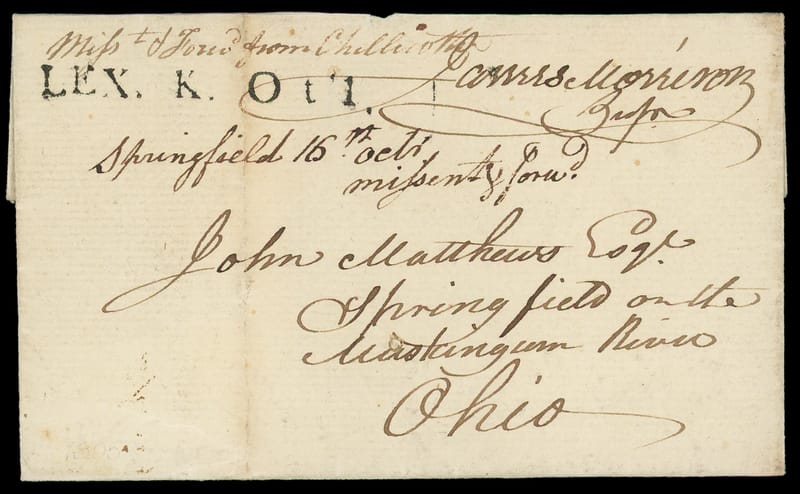 Miss.t & Forw.d from Chillicothe
LEX. K. Oct 1.
James Morrison
Supr
Springfield 16th octr
missent & forwd.
John Matthews Esqr.
Springfield on the
Muskingum River
Ohio